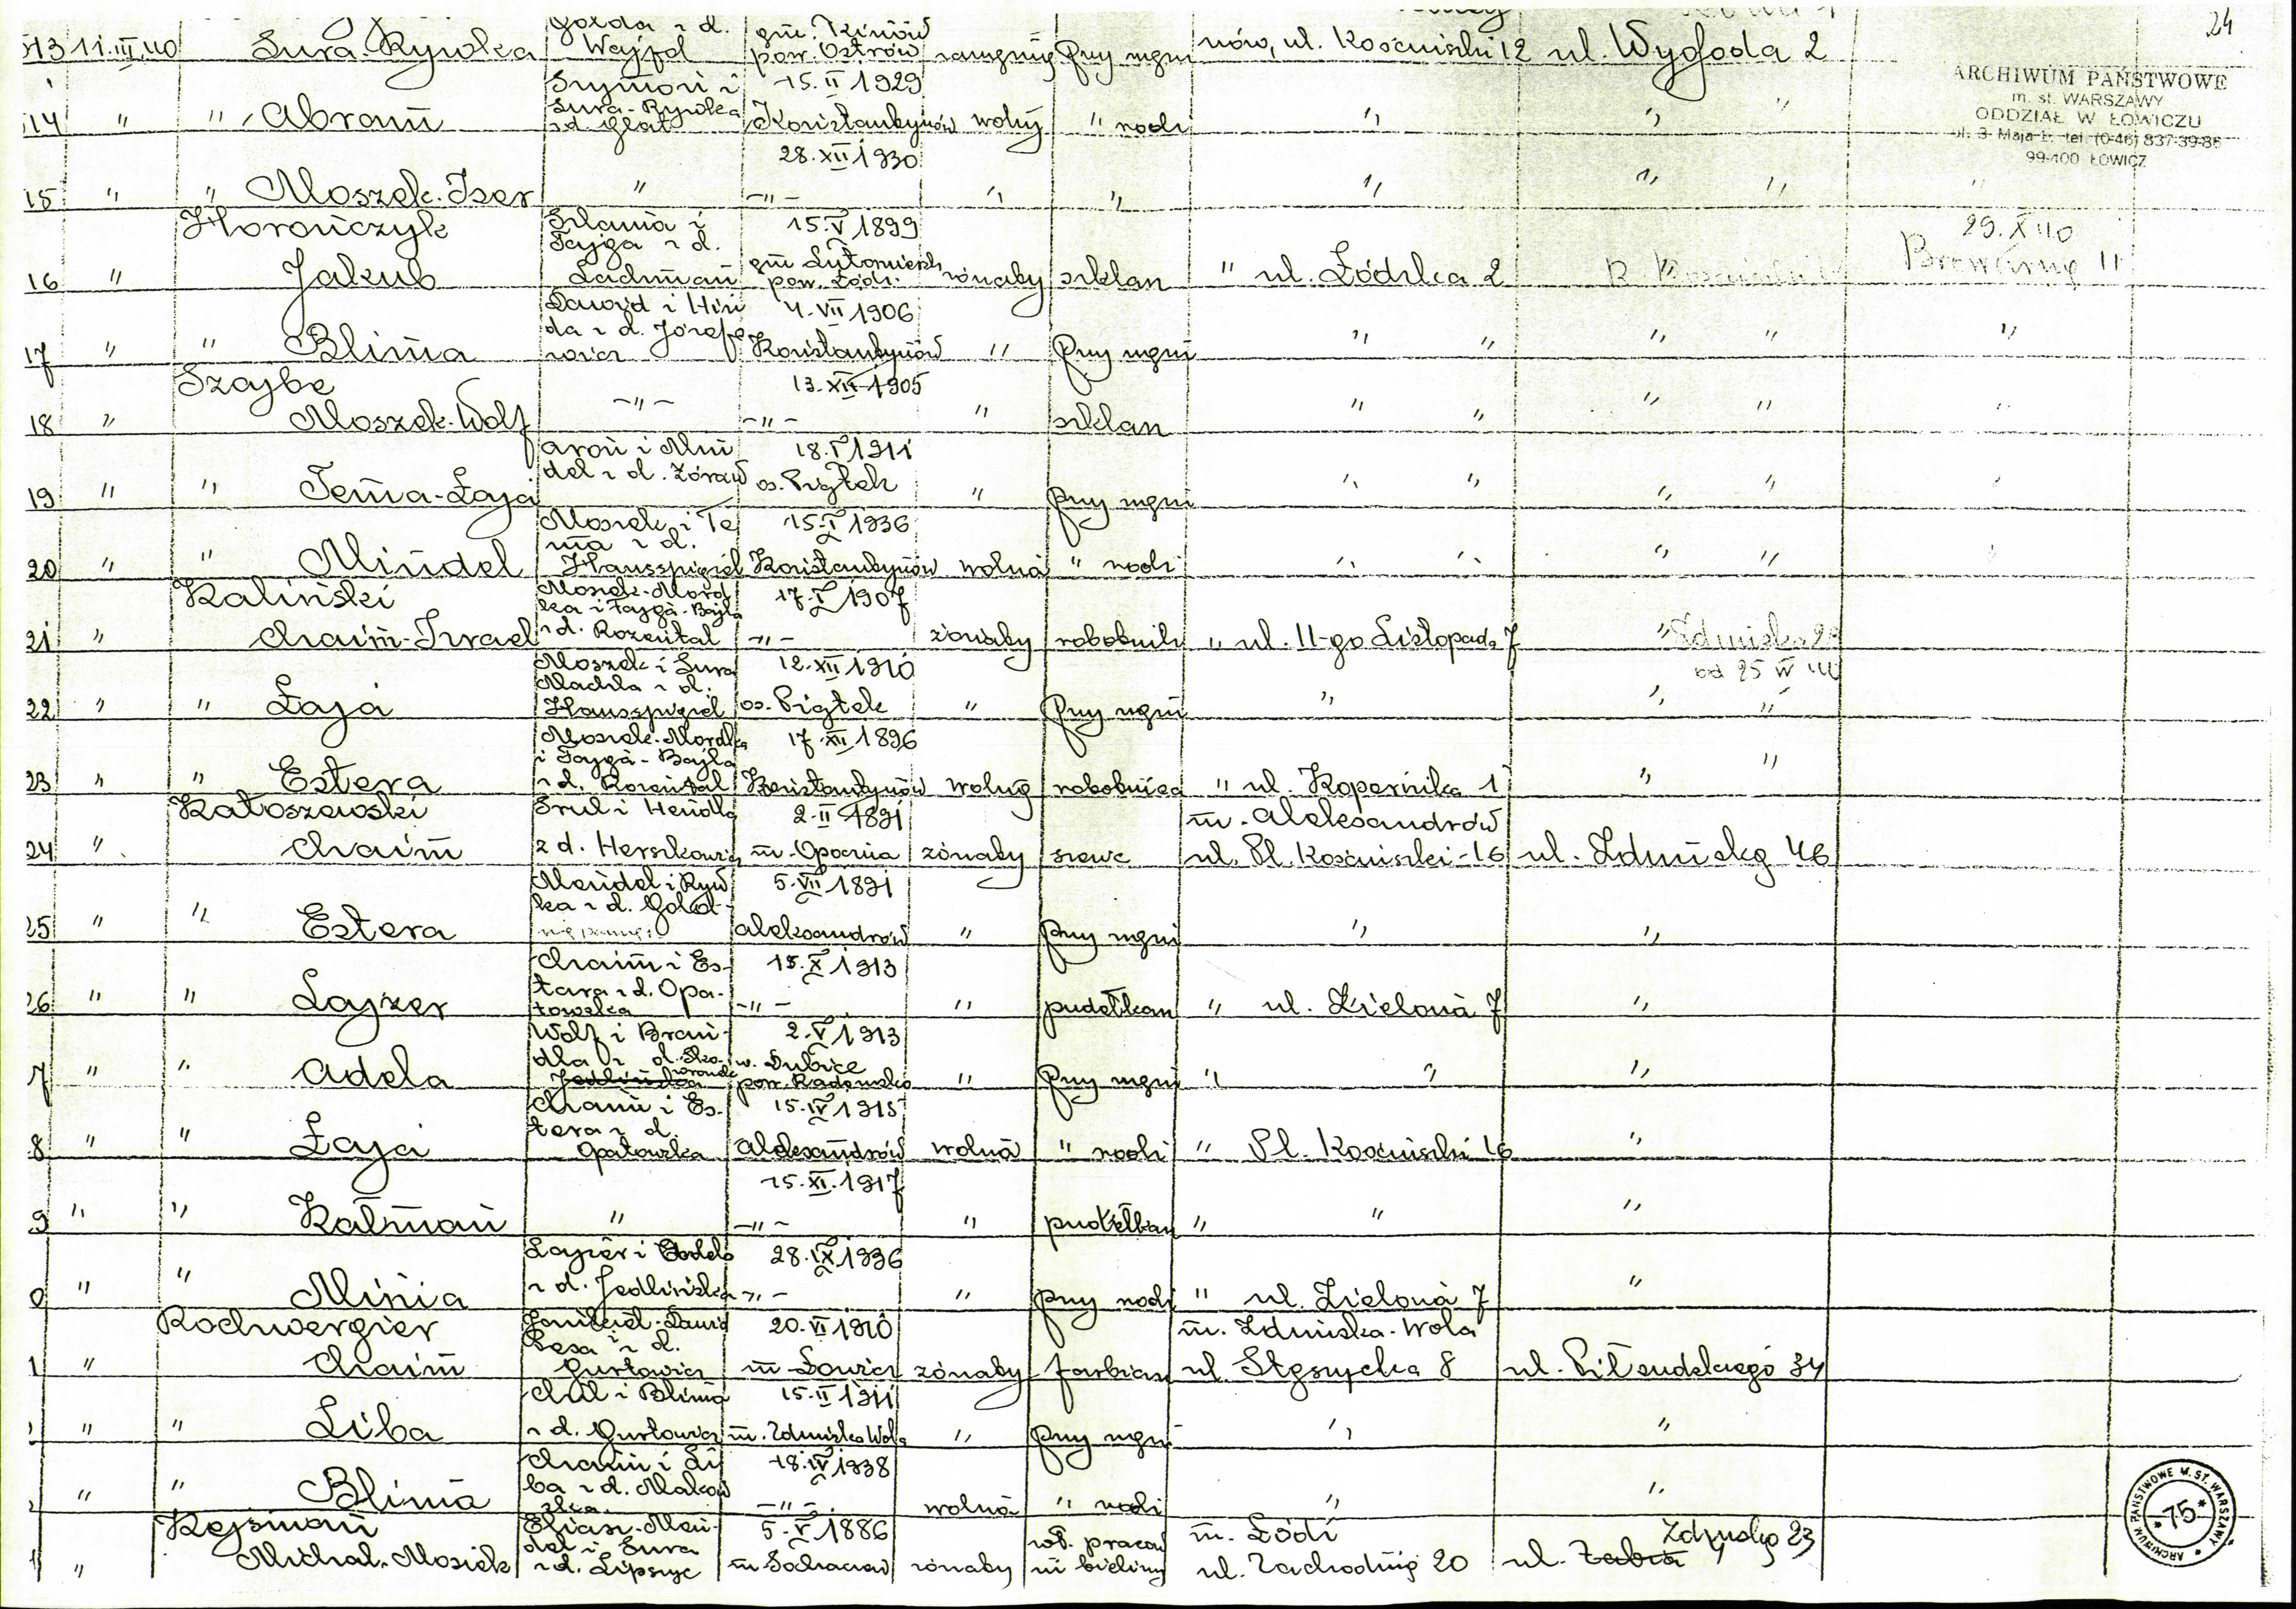 24
Golda z d. gm. Kinów
513 11.III.40 Sura-Rywka Wajfd pow. Ostrów zamężna przy mężu nów, ul. Kościuszki 12 ul. Wygoda 2
ARCHIWUM PAŃSTWOWE
m. st. WARSZAWY
ODDZIAŁ W ŁOWICZU
ul. 3 Maja 1. tel. (0-46) 837-39-86
99-400 ŁOWICZ
Szymon i 15.II 1929
Sura-Rywka
14 " " Abram z d. Glat Konstantynów wolny " rodz " " "
28.XII 1930
15 " " Moszek-Iser " -"- " " " " " "
Horończyk Szlama i 15.V 1899 29.X 40
Fajga z d. gm Lutomiersk
16 " Jakub Ladman pow. Łódź żonaty szklarz " ul. Łódzka 2 Browarną 11
Dawid i Hin 4.VII 1906
da z d. Józefo
17 " " Blima wicz Konstantynów " przy mężu " " " " "
Szajbe 13.XII 1905
18 " Moszek-Wolf -"- -"- " szklarz " " " " "
Aron i Min 18.V 1911
del z d. Żóraw os. Piątek
19 " " Tema-Łaja " przy mężu " " " " "
Moszek i Te 15.I 1936
ma z d.
20 " " Mindel Hausspigiel Konstantynów wolna " rodz " " " " "
Kaliński Moszek-Mord 17.I 1907
ka i Fajga-Bajla
21 " Chaim-Israel z d. Rozental -"- żonaty robotnik " ul. 11-go Listopada 7 " Zduńska 23
od 25 IV
Moszek i Sura 12.XII 1910
Machla z d.
22 " " Łaja Hausspigiel os. Piątek " przy mężu " " "
Moszek-Mordka 17.XII 1896
i Fajga-Bajla
23 " " Estera z d. Rozental Konstantynów wolna robotnica " ul. Kopernika 1 " "
Katoszewski Srul i Hendla 2.II 1891 m. Aleksandrów
24 " Chaim z d. Herszkowicz m. Opoczna żonaty szewc ul. Pl. Kościuszki-16 ul. Zduńską 46
Mendel i Ryw 5.VII 1891
ka z d. Gold-
25 " " Estera Aleksandrów " przy mężu " "
Chaim i Es- 15.X 1913
tera z d. Opa-
26 " " Lajzer towska -"- " pudełkarz " ul. Zielona 7 "
Wolf i Brani- 2.V 1913
dla z d. w. Dubice
7 " " Adela Jedlińska pow. Radomsko " przy mężu " " "
Chaim i Es- 15.IV 1915
tera z d.
8 " " Łaja Opatowska Aleksandrów wolna " rodz " Pl. Kościuszki 16 "
15.XI.1917
9 " " Kalman " -"- " pudełkarz " " "
Lajzer i Adela 28.IX 1936
0 " " Minia z d. Jedlińska -"- " przy rodz " ul. Zielona 7 "
Rochwergier Dawid 20.VI 1910 m. Zduńska-Wola
Pesa i d.
1 " Chaim Gurtowicz m Łowicz żonaty farbiarz ul. Stęszycka 8 ul. Piłsudskiego 34
Chil i Blima 15.II 1911
" " Liba z d. Gurtowicz m. Zduńska Wola " przy mężu " "
Chaim i Li 18.IV 1938
ba z d. Makow
" " Blima ska -"- wolna " rodz " "
Rejsman Eliasz-Men- 5.V 1886 wł. pracow m. Łódź Zduńską 23
del i Sura
" Michal-Mosiek z d. Lipszyc m Sochaczew żonaty ni bielizny ul. Zachodnią 20 ul. Żabia
ARCHIWUM PAŃSTWOWE M. ST. WARSZAWY
*75*